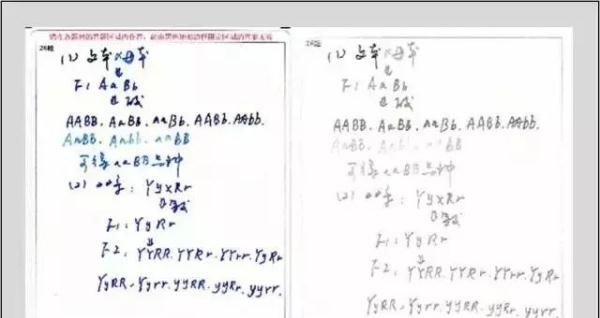 请在各题目的答题区域内作答,超出黑色矩形边框限定区域的答案无效
26题
(1) 父本×母本
↓
F1 AaBb
AABB. AaBB. aaBb. AABb. AAbb.
AaBB. Aabb. aaBB
可得aaBB品种
(2) YyxRr
F1: YyRr
↓
F2. YYRR. YYRr. YYrr. YyRr
YyRR. Yyrr. yyRR. yyRr. yyrr.
26题
(1) 父本×母本
↓
F1 AaBb
AABB. AaBB. aaBb. AABb. AAbb.
AaBB. Aabb. aaBB
可得aaBB品种
(2) YyxRr
F1: YyRr
↓
F2. YYRR. YYRr. YYrr. YyRr
YyRR. Yyrr. yyRR. yyRr. yyrr.